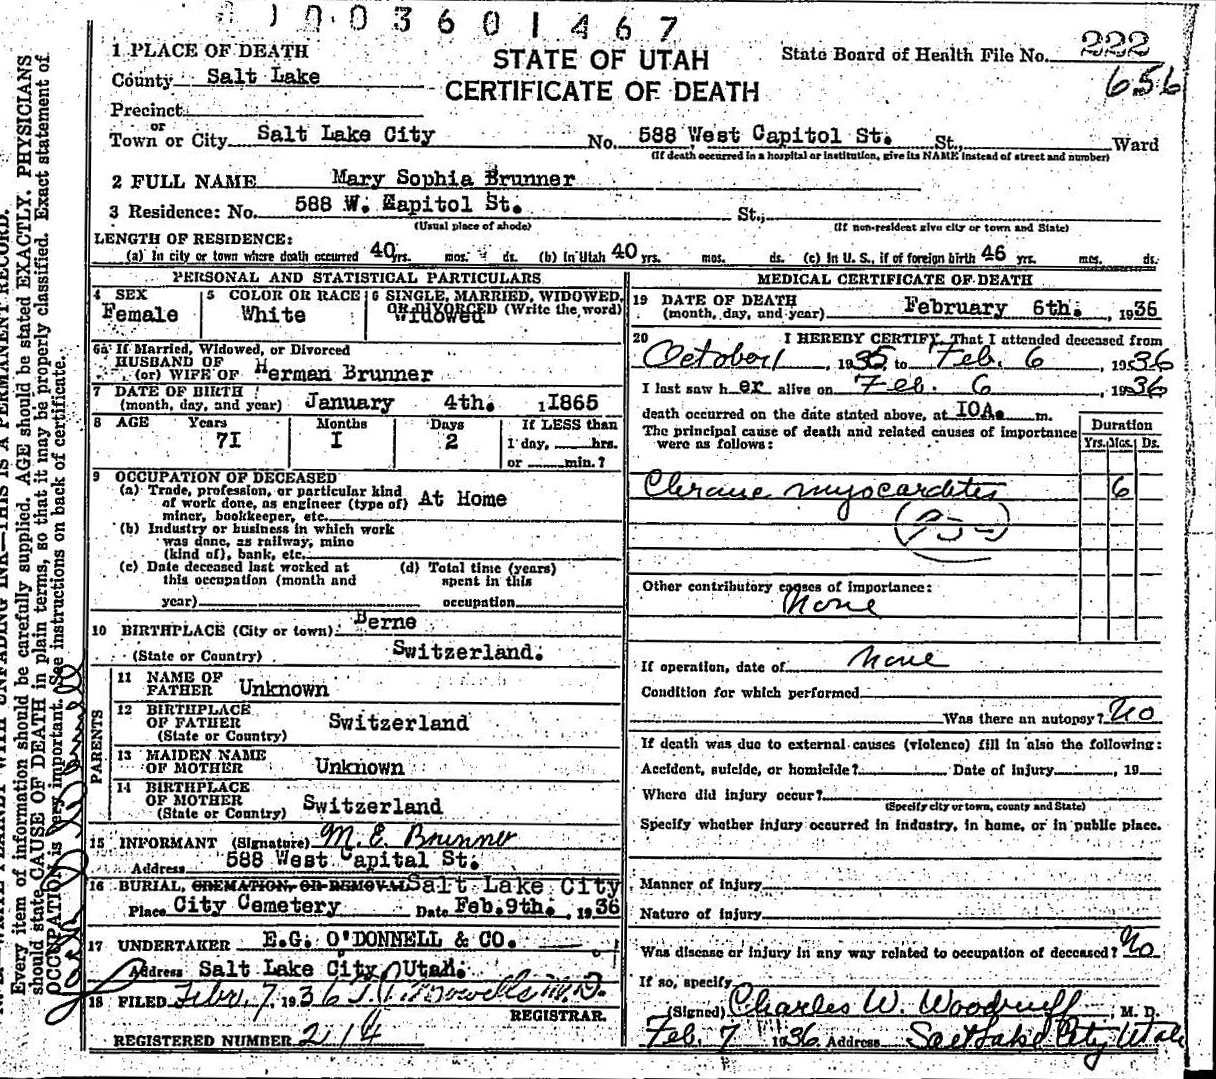 1003601467
1 PLACE OF DEATH
STATE OF UTAH
State Board of Health File No. 222
County Salt Lake
CERTIFICATE OF DEATH
656
Precinct
or
Town or City Salt Lake City No. 588 West Capitol St. St., Ward
(If death occurred in a hospital or institution, give its NAME instead of street and number)
2 FULL NAME Mary Sophia Brunner
3 Residence: No. 588 W. Capitol St. St.,
(Usual place of abode) (If non-resident give city or town and State)
LENGTH OF RESIDENCE:
(a) In city or town where death occurred 40 yrs. mos. ds. (b) In Utah 40 yrs. mos. ds. (c) In U. S., if of foreign birth 46 yrs. mos. ds.
PERSONAL AND STATISTICAL PARTICULARS
4 SEX 5 COLOR OR RACE 6 SINGLE, MARRIED, WIDOWED, OR DIVORCED (Write the word)
Female White Widowed
6a If Married, Widowed, or Divorced
HUSBAND OF
(or) WIFE OF Herman Brunner
7 DATE OF BIRTH
(month, day, and year) January 4th. , 1865
8 AGE Years Months Days If LESS than
71 1 2 1 day, hrs.
or min.?
9 OCCUPATION OF DECEASED
(a) Trade, profession, or particular kind
of work done, as engineer (type of) At Home
miner, bookkeeper, etc.
(b) Industry or business in which work
was done, as railway, mine
(kind of), bank, etc.
(c) Date deceased last worked at (d) Total time (years)
this occupation (month and spent in this
year) occupation
10 BIRTHPLACE (City or town) Berne
(State or Country) Switzerland.
PARENTS
11 NAME OF
FATHER Unknown
12 BIRTHPLACE
OF FATHER Switzerland
(State or Country)
13 MAIDEN NAME
OF MOTHER Unknown
14 BIRTHPLACE
OF MOTHER Switzerland
(State or Country)
15 INFORMANT (Signature) M. E. Brunner
Address 588 West Capital St.
16 BURIAL, CREMATION, OR REMOVAL Salt Lake City
Place City Cemetery Date Feb. 9th. , 1936
17 UNDERTAKER E.G. O'DONNELL & CO.
Address Salt Lake City, Utah.
18 FILED Febr. 7, 1936 M.D.
REGISTRAR.
REGISTERED NUMBER 214
MEDICAL CERTIFICATE OF DEATH
19 DATE OF DEATH
(month, day, and year) February 6th. , 1936
20 I HEREBY CERTIFY, That I attended deceased from
October 1, 1935, to Feb. 6, 1936
I last saw her alive on Feb. 6, 1936
death occurred on the date stated above, at 10A. m.
The principal cause of death and related causes of importance
were as follows:
Duration
Yrs. Mos. Ds.
Chronic myocarditis 6
Other contributory causes of importance:
None
If operation, date of None
Condition for which performed
Was there an autopsy? No
If death was due to external causes (violence) fill in also the following:
Accident, suicide, or homicide? Date of Injury , 19
Where did injury occur?
(Specify city or town, county and State)
Specify whether injury occurred in industry, in home, or in public place.
Manner of injury
Nature of injury
Was disease or injury in any way related to occupation of deceased? No
If so, specify
(Signed) Charles W. Woodruff, M. D.
Feb. 7 1936 Address Salt Lake City Utah
THIS IS A PERMANENT RECORD.
Every item of information should be carefully supplied. AGE should be stated EXACTLY. PHYSICIANS
should state CAUSE OF DEATH in plain terms, so that it may be properly classified. Exact statement of
OCCUPATION is very important. See instructions on back of certificate.